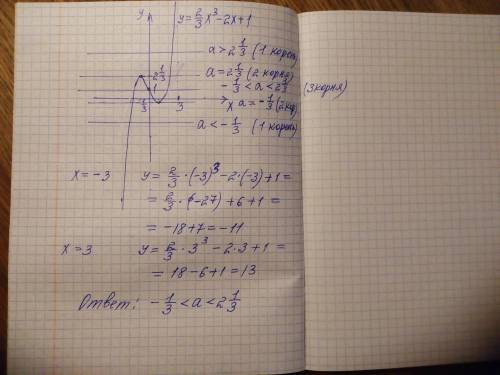 y
y = 2/3 x³ - 2x + 1
a > 2 1/3 (1 корень)
2 1/3
a = 2 1/3 (2 корня)
1
- 1/3 < a < 2 1/3 (3 корня)
- 1/3
3
x
a = - 1/3 (2 кор)
a < - 1/3 (1 корень)
x = -3 y = 2/3 · (-3)³ - 2 · (-3) + 1 =
= 2/3 · (-27) + 6 + 1 =
= -18 + 7 = -11
x = 3 y = 2/3 · 3³ - 2 · 3 + 1 =
= 18 - 6 + 1 = 13
Ответ: - 1/3 < a < 2 1/3